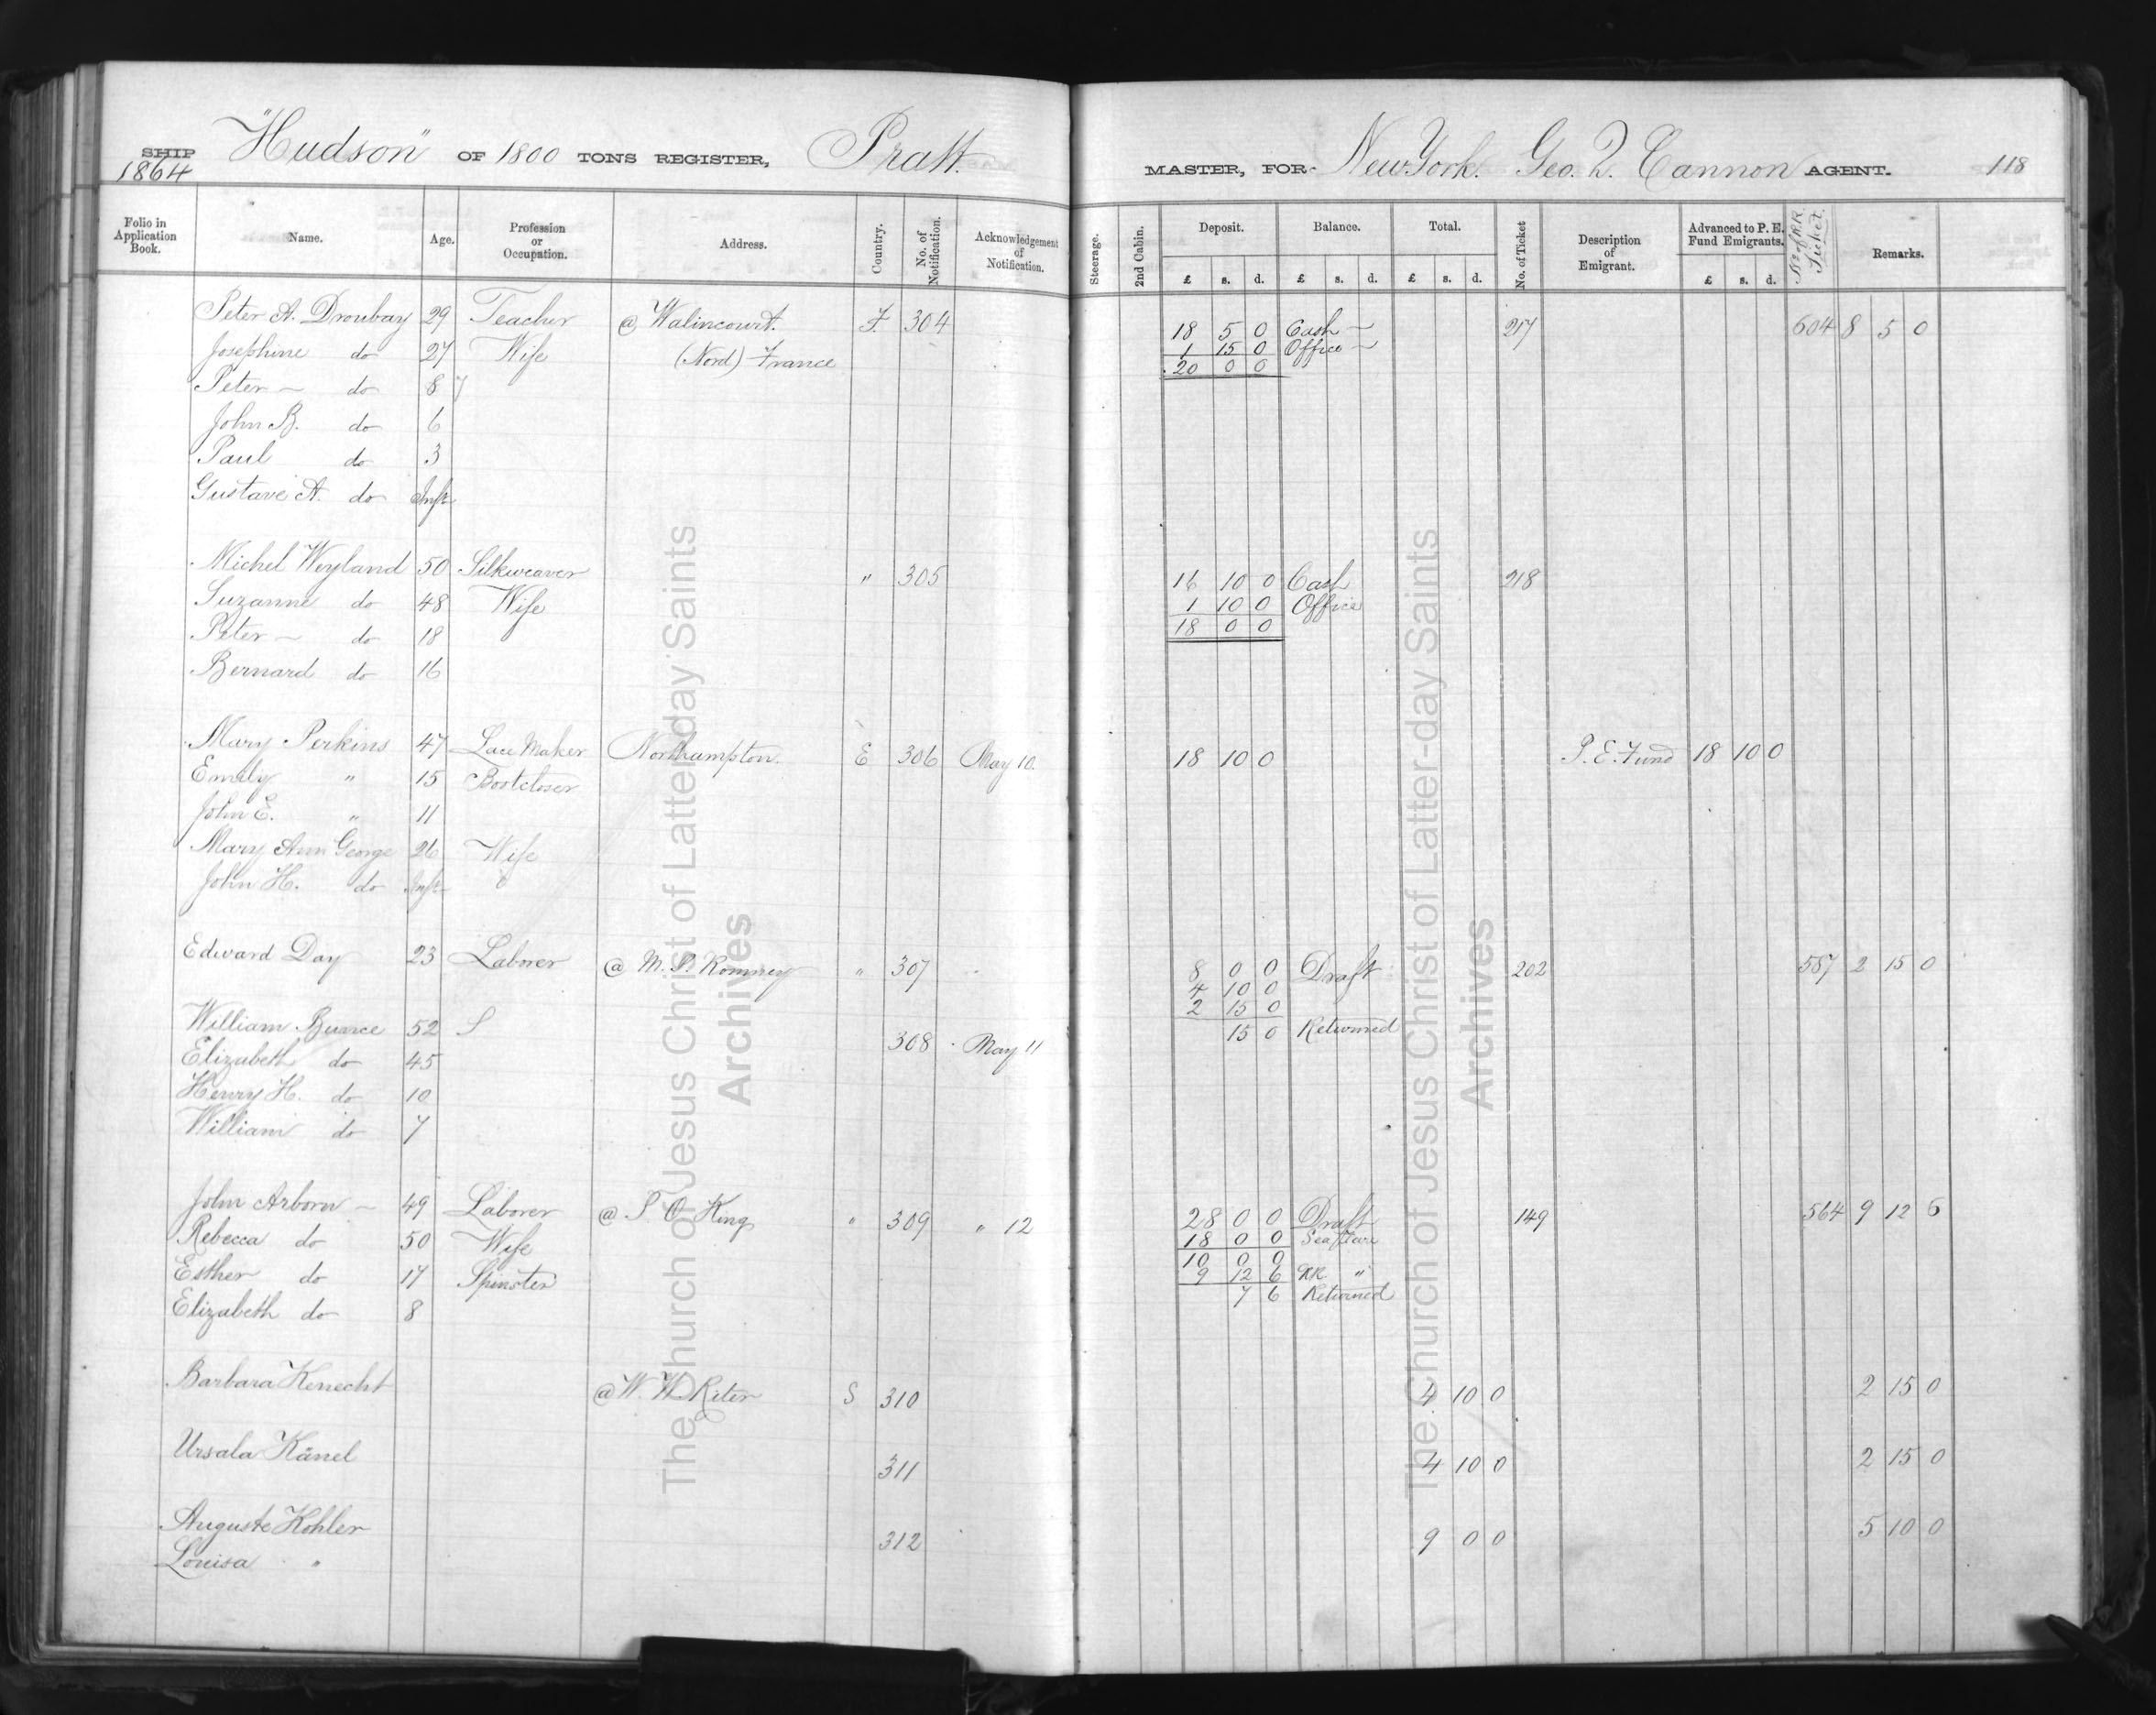 SHIP "Hudson" OF 1800 TONS REGISTER, Pratt. MASTER, FOR New York. Geo. Q. Cannon AGENT. 118
1864
Folio in Application Book. Name. Age. Profession or Occupation. Address. Country. No. of Notification. Acknowledgement of Notification. Steerage. 2nd Cabin. Deposit. Balance. Total. No. of Ticket Description of Emigrant. Advanced to P. E. Fund Emigrants. No of R.R. Ticket. Remarks.
£ s. d. £ s. d. £ s. d. £ s. d.
Peter A. Droubay 29 Teacher @ Walincourt. F. 304 18 5 0 Cash 217 604 8 5 0
Josephine do 27 Wife (Nord) France 1 15 0 Office
20 0 0
Peter do 8 7
John B. do 6
Paul do 3
Gustave A. do Inft
Michel Weyland 50 Silkweaver " 305 16 10 0 Cash 218
Suzanne do 48 Wife 1 10 0 Office
Peter do 18 18 0 0
Bernard do 16
Mary Perkins 47 Lace Maker Northampton. E 306 May 10. 18 10 0 P. E. Fund 18 10 0
Emily " 15 Bootcloser
John E. " 11
Mary Ann George 26 Wife
John H. do Inft
Edward Day 23 Laborer @ M. P. Romney " 307 8 0 0 Draft 202 587 2 15 0
4 10 0
2 15 0
15 0 Returned
William Bunce 52 S 308 May 11
Elizabeth do 45
Henry H. do 10
William do 7
John Arborn 49 Laborer @ T. O. King " 309 " 12 28 0 0 Draft 149 564 9 12 6
Rebecca do 50 Wife 18 0 0 Sea fare
10 0 0
Esther do 17 Spinster 9 12 6 RR "
Elizabeth do 8 7 6 Returned
Barbara Kenecht @ W. W. Riter S 310 4 10 0 2 15 0
Ursala Känel 311 4 10 0 2 15 0
Auguste Kohler 312 9 0 0 5 10 0
Louisa "
The Church of Jesus Christ of Latter-day Saints
Archives
The Church of Jesus Christ of Latter-day Saints
Archives